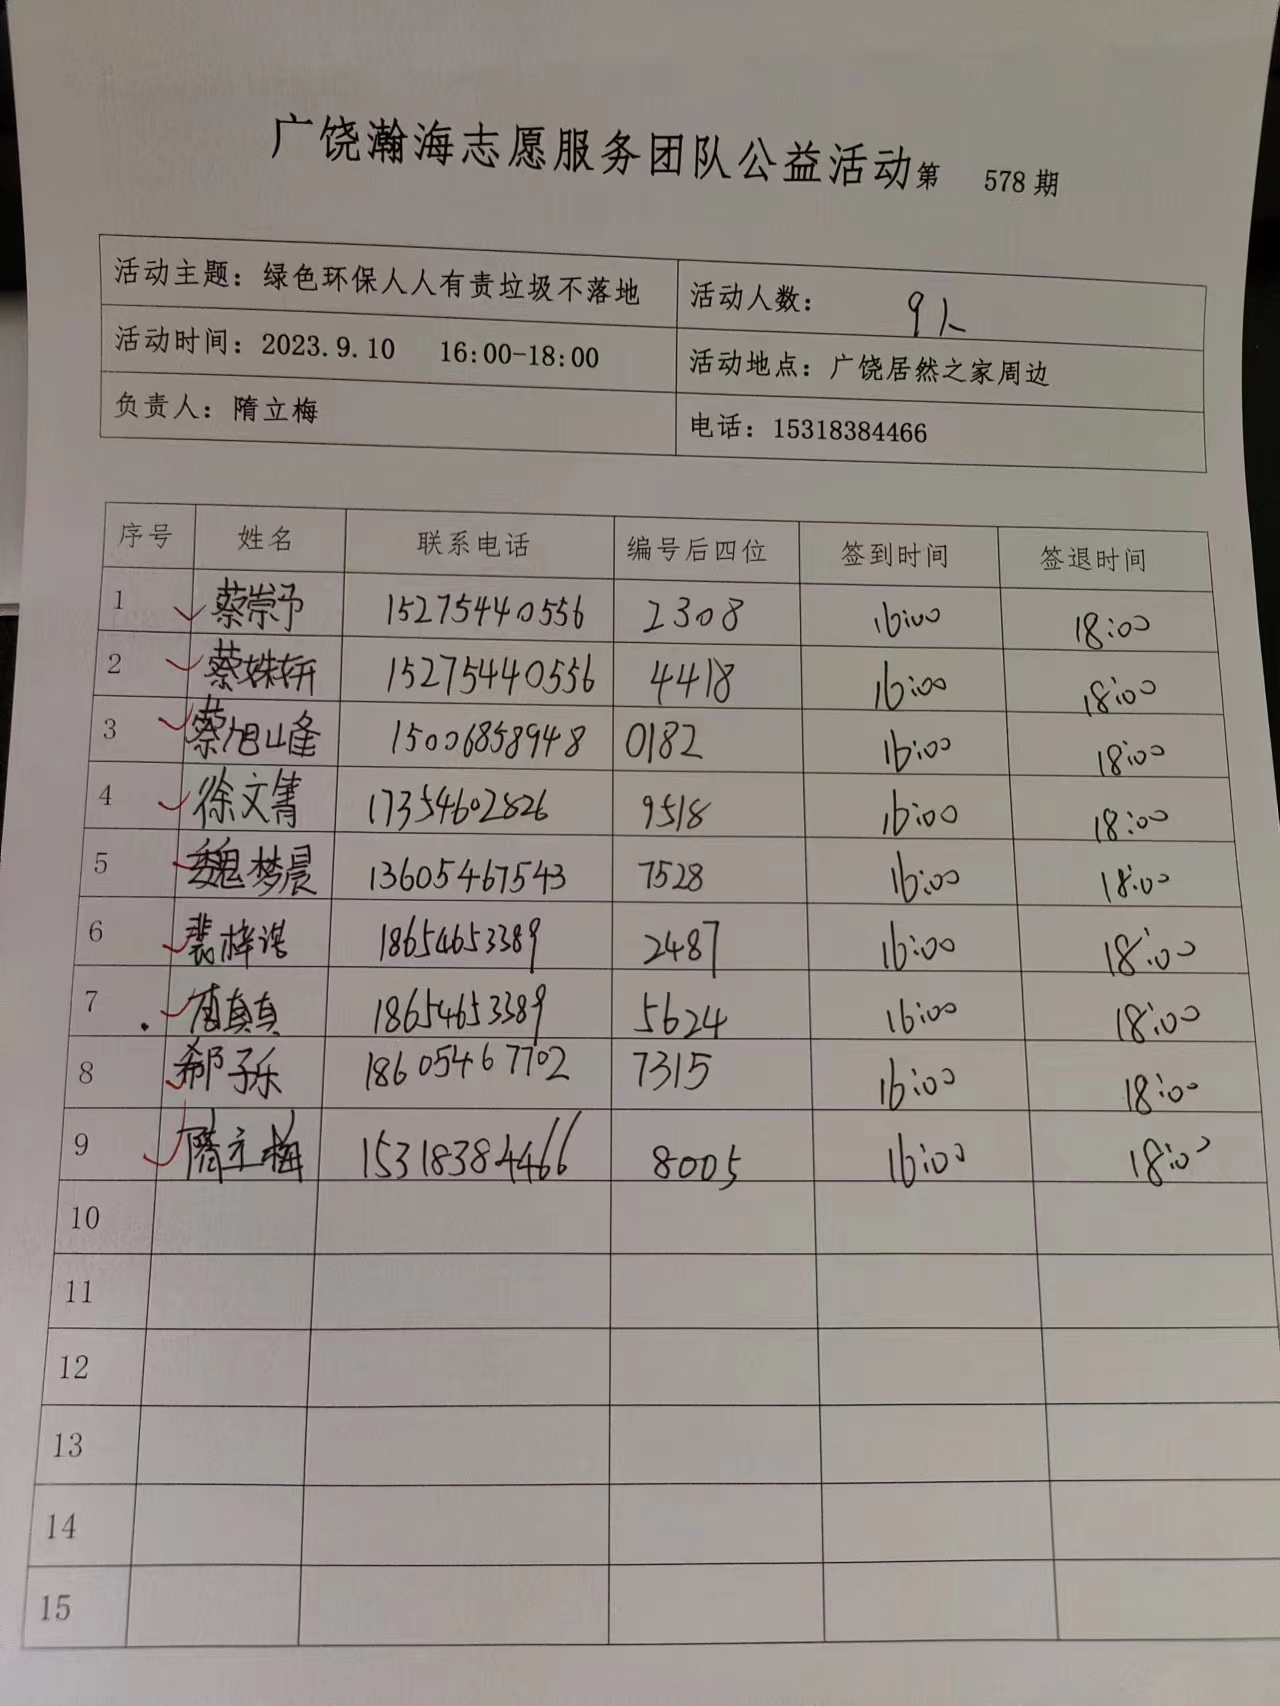 广饶瀚海志愿服务团队公益活动第 578 期
活动主题：绿色环保人人有责垃圾不落地 活动人数： 9人
活动时间：2023.9.10 16:00-18:00 活动地点：广饶居然之家周边
负责人：隋立梅 电话：15318384466
序号 姓名 联系电话 编号后四位 签到时间 签退时间
1 蔡崇予 15275440556 2308 16:00 18:00
2 蔡姝妍 15275440556 4418 16:00 18:00
3 蔡旭峰 15006858948 0182 16:00 18:00
4 徐文箐 17354602826 9518 16:00 18:00
5 魏梦晨 13605467543 7528 16:00 18:00
6 裴梓诺 18654653389 2487 16:00 18:00
7 真真 18654653389 5624 16:00 18:00
8 郗子乐 18605467702 7315 16:00 18:00
9 隋立梅 15318384466 8005 16:00 18:00
10
11
12
13
14
15